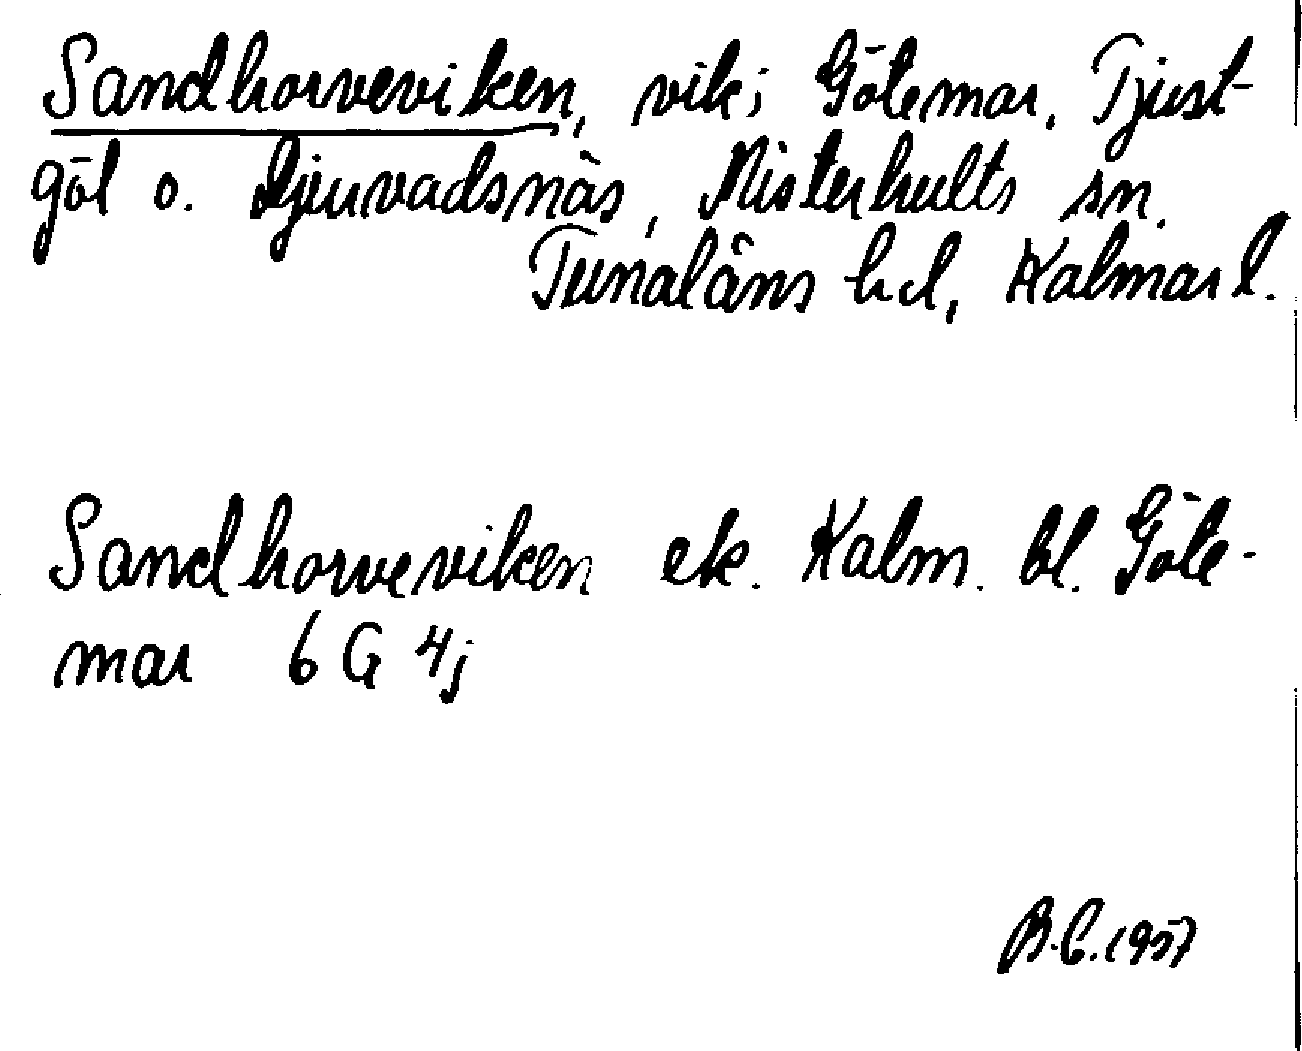 Sandhorveviken, vik i Götemar, Tjust-
göl o. Djuvadsnäs, Misterhults sn.
Tunaläns hd, Kalmar l.
Sandhorveviken ek. Kalm. bl. Göte-
mar 6 G 4j
B.C. 1957